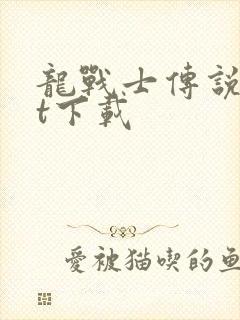 龍戰士傳說
t下載
愛被猫喫的魚